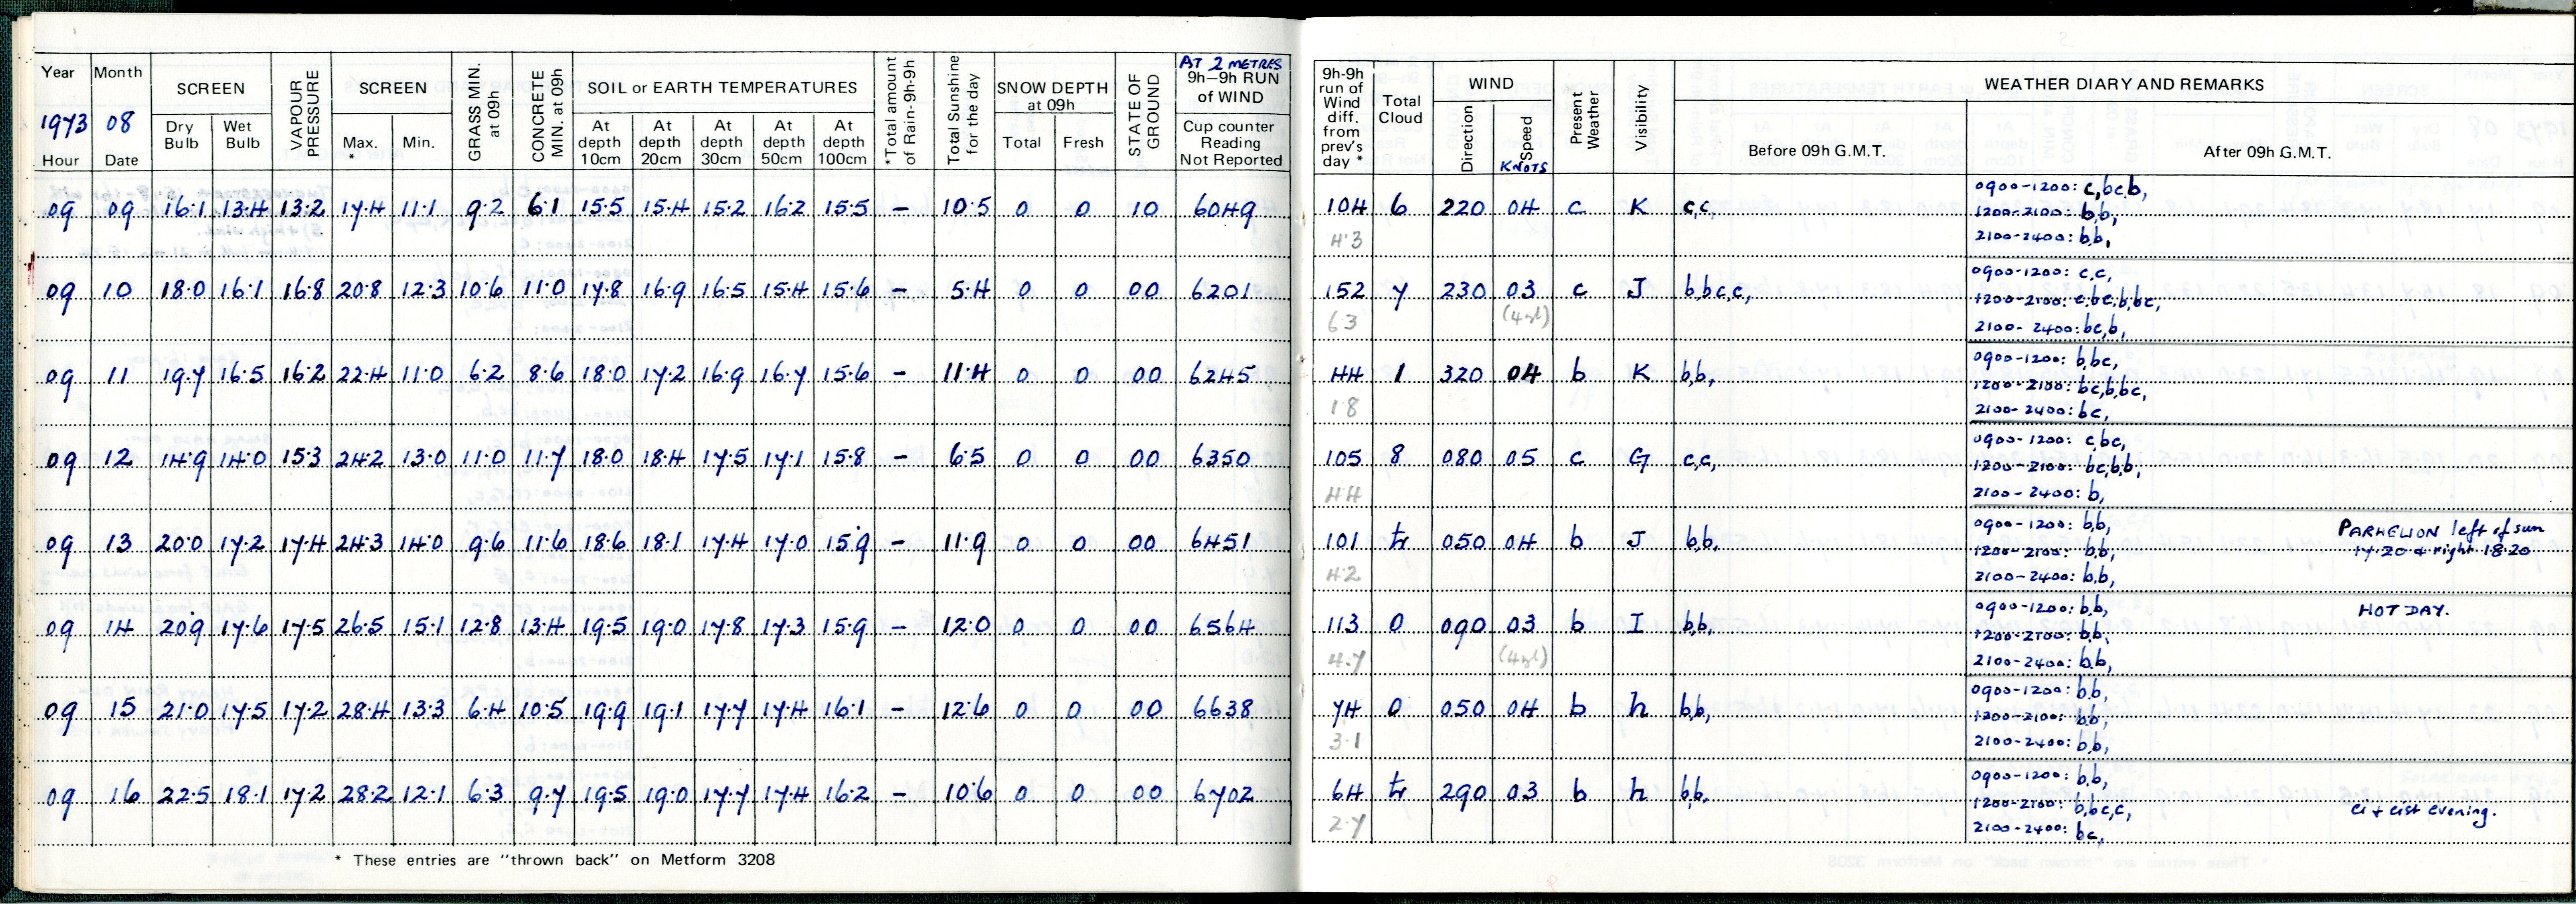 AT 2 METRES
Year Month SCREEN VAPOUR PRESSURE SCREEN GRASS MIN. at 09h CONCRETE MIN. at 09h SOIL or EARTH TEMPERATURES *Total amount of Rain-9h-9h Total Sunshine for the day SNOW DEPTH at 09h STATE OF GROUND 9h–9h RUN of WIND
1973 08
Hour Date Dry Bulb Wet Bulb Max. * Min. At depth 10cm At depth 20cm At depth 30cm At depth 50cm At depth 100cm Total Fresh Cup counter Reading Not Reported
09 09 16.1 13.4 13.2 17.4 11.1 9.2 6.1 15.5 15.4 15.2 16.2 15.5 – 10.5 0 0 10 6049
09 10 18.0 16.1 16.8 20.8 12.3 10.6 11.0 17.8 16.9 16.5 15.4 15.6 – 5.4 0 0 00 6201
09 11 19.7 16.5 16.2 22.4 11.0 6.2 8.6 18.0 17.2 16.9 16.7 15.6 – 11.4 0 0 00 6245
09 12 14.9 14.0 15.3 24.2 13.0 11.0 11.7 18.0 18.4 17.5 17.1 15.8 – 6.5 0 0 00 6350
09 13 20.0 17.2 17.4 24.3 14.0 9.6 11.6 18.6 18.1 17.4 17.0 15.9 – 11.9 0 0 00 6451
09 14 20.9 17.6 17.5 26.5 15.1 12.8 13.4 19.5 19.0 17.8 17.3 15.9 – 12.0 0 0 00 6564
09 15 21.0 17.5 17.2 28.4 13.3 6.4 10.5 19.9 19.1 17.7 17.4 16.1 – 12.6 0 0 00 6638
09 16 22.5 18.1 17.2 28.2 12.1 6.3 9.7 19.5 19.0 17.7 17.4 16.2 – 10.6 0 0 00 6702
* These entries are "thrown back" on Metform 3208
9h-9h run of Wind diff. from prev's day * Total Cloud WIND Present Weather Visibility WEATHER DIARY AND REMARKS
Direction Speed KNOTS Before 09h G.M.T. After 09h G.M.T.
104 6 220 04 c K c,c,
4.3
0900-1200: c,bc,b,
1200-2100: b,b,
2100-2400: b,b,
152 7 230 03 c J b,b,c,c,
6.3 (4gl)
0900-1200: c,c,
1200-2100: c,bc,b,bc,
2100-2400: bc,b,
44 1 320 04 b K b,b,
1.8
0900-1200: b,bc,
1200-2100: bc,b,bc,
2100-2400: bc,
105 8 080 05 c G c,c,
4.4
0900-1200: c,bc,
1200-2100: bc,b,b,
2100-2400: b,
101 tr 050 04 b J b,b,
4.2
0900-1200: b,b,
1200-2100: b,b,
2100-2400: b,b,
PARHELION left of sun
17.20 & right 18.20
113 0 090 03 b I b,b,
4.7 (4gl)
0900-1200: b,b,
1200-2100: b,b,
2100-2400: b,b,
HOT DAY.
74 0 050 04 b h b,b,
3.1
0900-1200: b,b,
1200-2100: b,b,
2100-2400: b,b,
64 tr 290 03 b h b,b,
2.7
0900-1200: b,b,
1200-2100: b,bc,c,
2100-2400: bc,
Ci + cist evening.